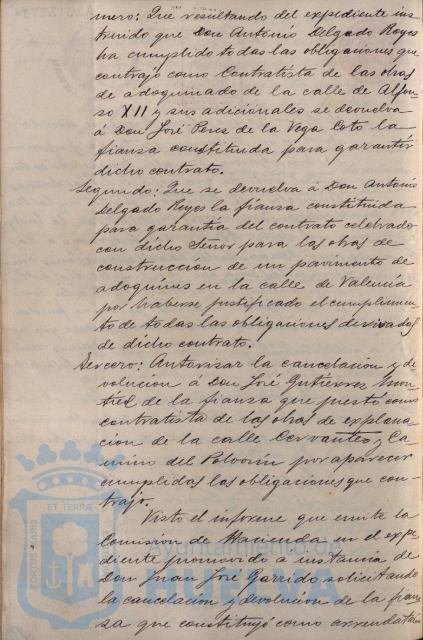 mero: Que resultando del expediente ins
truido que Don Antonio Delgado Reyes
ha cumplido todas las obligaciones que
contrajo como Contratista de las obras
de adoquinado de la calle de Alfon-
so XII y sus adicionales se devuelva
á Don José Perez de la Vega Coto la
fianza constituida para garantir
dicho contrato.
Segundo: Que se devuelva á Don Antonio
Delgado Reyes la fianza constituida
para garantia del contrato celebrado
con dicho Señor para las obras de
construccion de un pavimento de
adoquines en la calle de Valencia
por haberse justificado el cumplimien
to de todas las obligaciones derivadas
de dicho contrato.
Tercero: Autorisar la cancelacion y de
volucion á Don José Gutierrez Mon
tiel de la fianza que prestó como
contratista de las obras de explana
cion de la calle Cervantes y Ca
mino del Polvorin por aparecer
cumplidas las obligaciones que con-
trajo.
Visto el informe que emite la
Comision de Hacienda en el expe
diente promovido a instancia de
Don Juan José Garrido solicitando
la cancelacion y devolucion de la fian
za que constituyó como arrendatario
PORTUS MARIS ET TERRAE
Ayuntamiento de